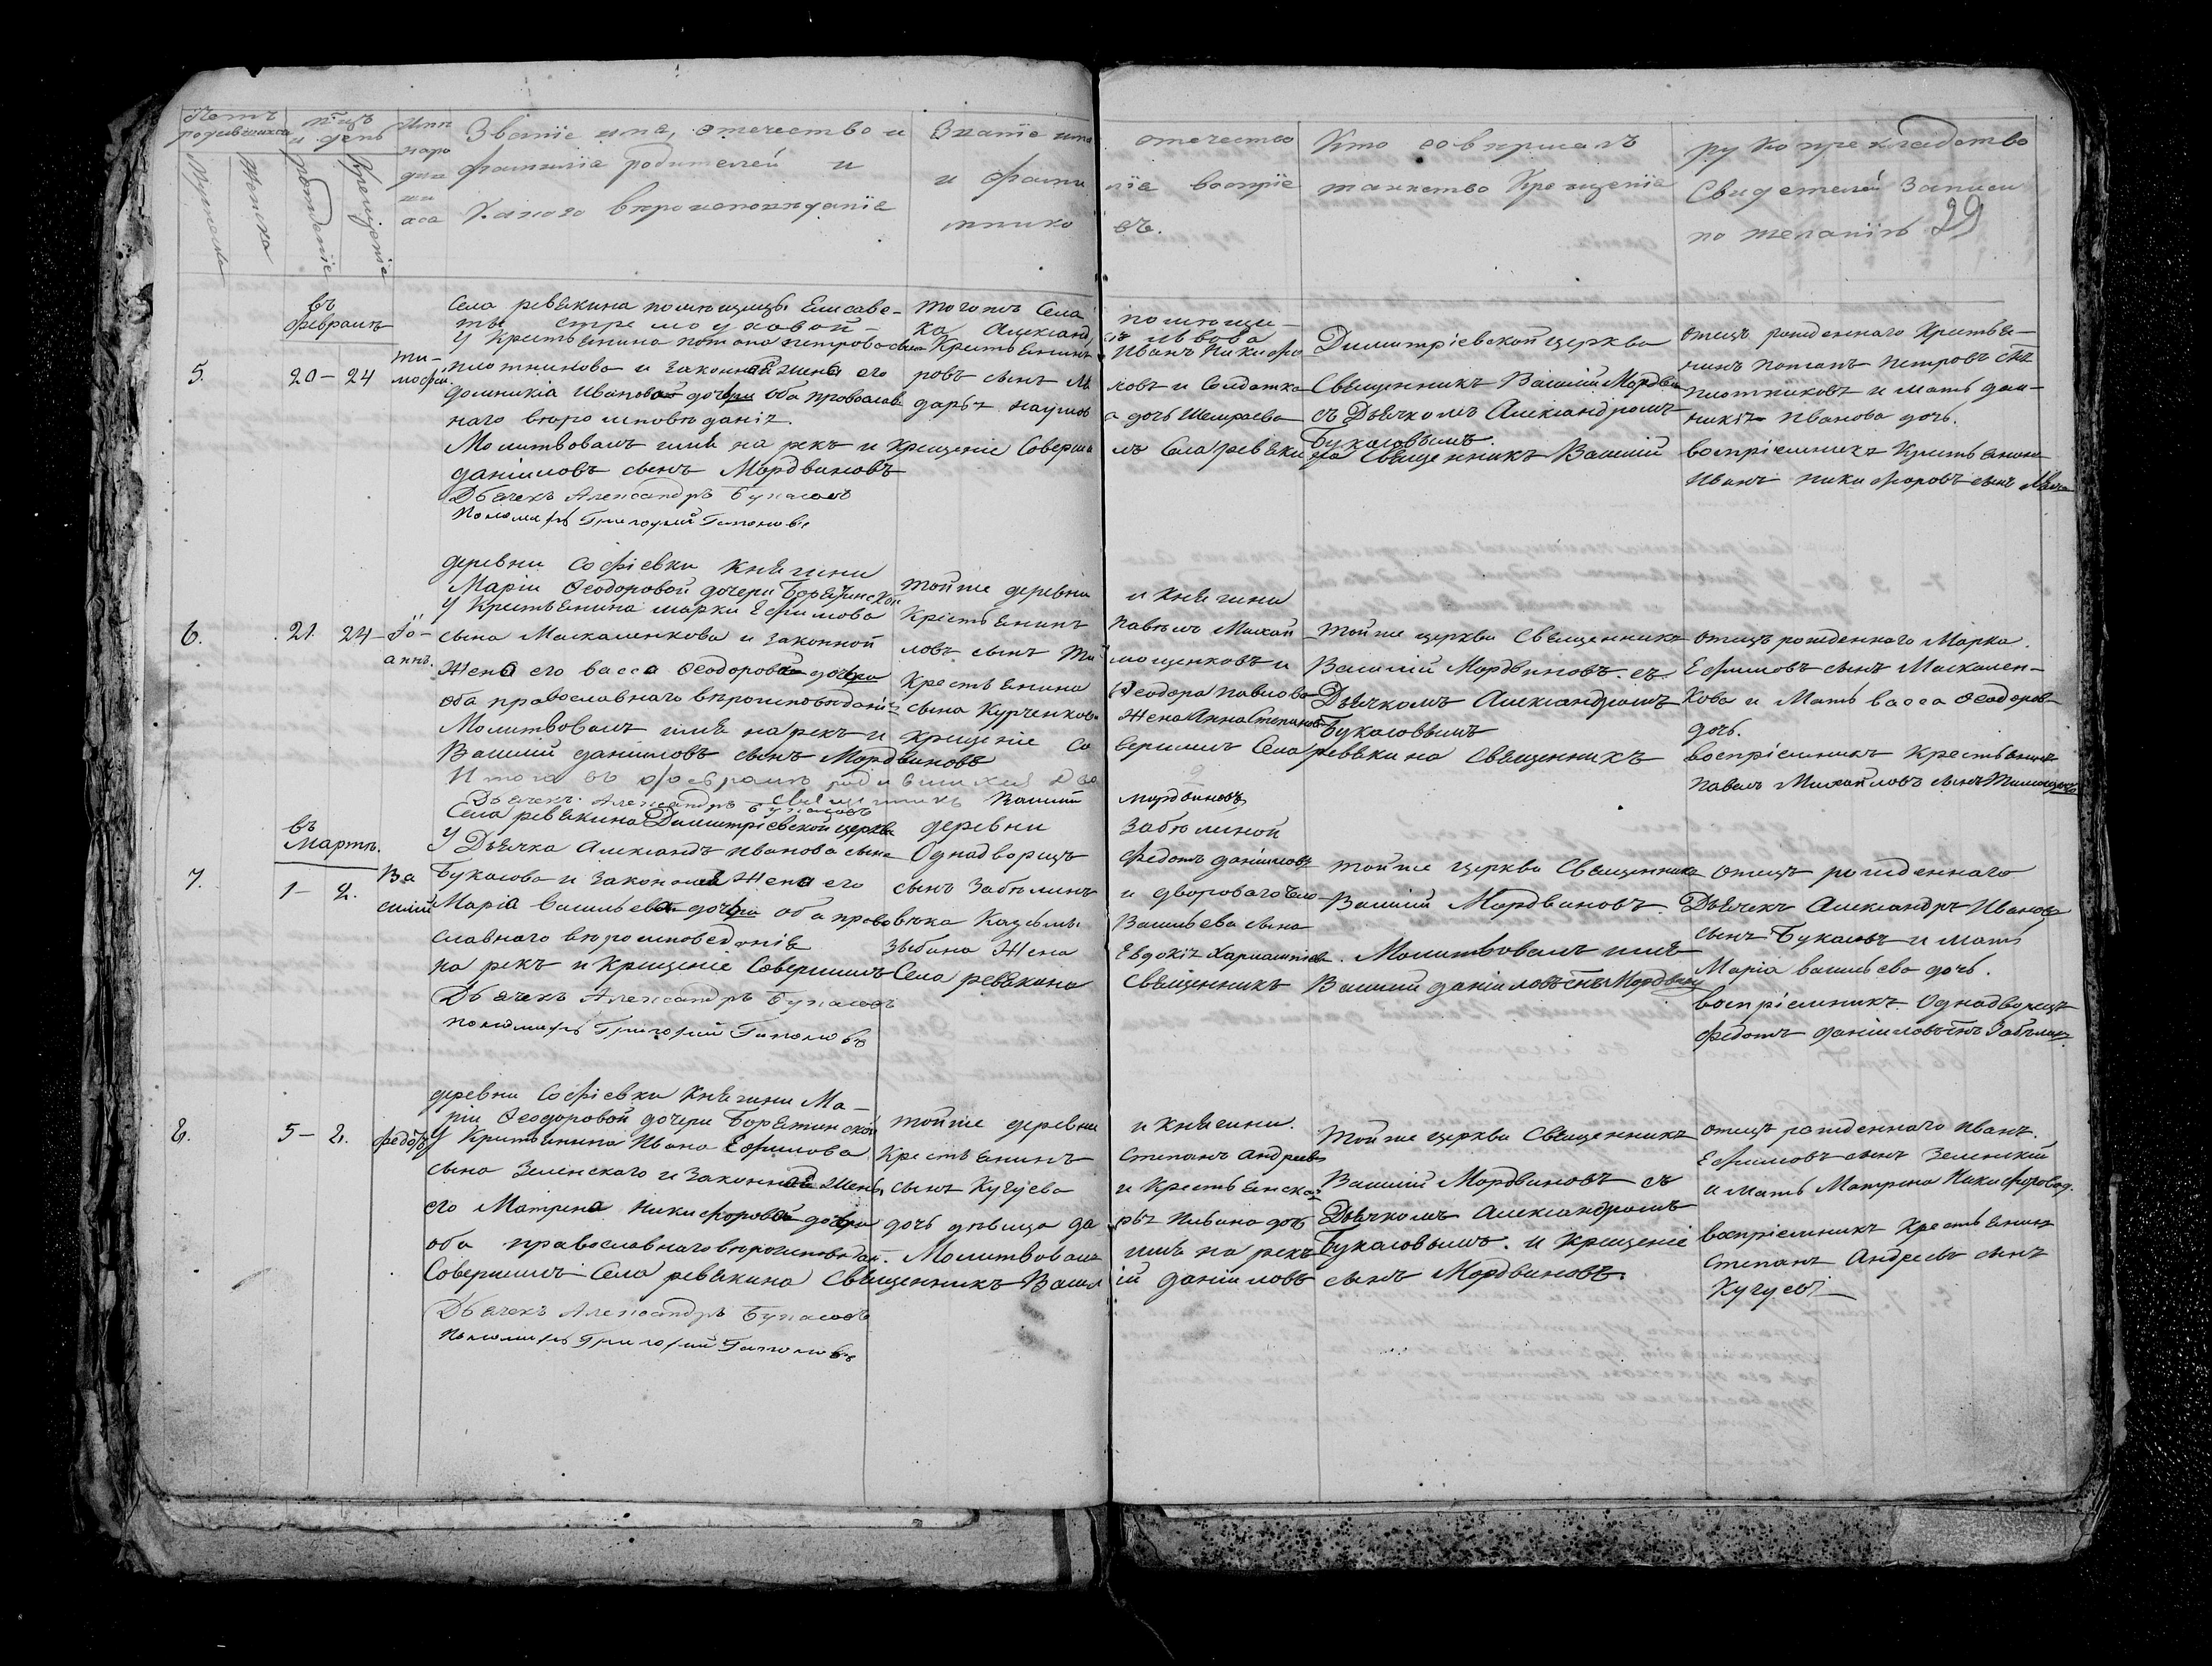 Счетъ родившихся
Мужеска
Женска
М-цъ и день
рожденіе
Крещеніе
Имя
Званіе имя, отечество и
фамилія родителей и
Какого вѣроисповѣданія
Званіе имя
и фами
отечество
лія воспріе
мнико
въ.
Кто совершалъ
таинство Крещенія
рукоприкладство
Свидетелей Записи
по желанію 29
въ
февралѣ
5.
20 – 24
Ти-
мофій
Села ревякина помѣщицы Елисаве-
ты
У Крестьянина потапа петрова сына
плотникова и Законной жены его
домникіа Ивановой дочери оба православ
наго вѣроисповѣданія.
Молитвовалъ имя на рекъ и Крещеніе Соверши
даніиловъ сынъ Мордвиновъ
Дьячекъ Александръ Букасовъ
Пономарь Григорий Гапоновъ
того же Села
ка Александ
Крестьянинъ
ровъ сынъ Ма
дарья наумов
помѣщи-
львова
Иванъ Никифо
ковъ и Солдатка
а дочь
лъ Села ревяки
Димитріевской церкви
Священникъ Василій Мордви
съ Дьячкомъ Александромъ
Букасовымъ.
на Священникъ Василій
отецъ рожденнаго Крестья-
нинъ потапъ петровъ снъ
плотниковъ и мать дом-
никія Иванова дочь.
воспріемникъ Крестьянинъ
Иванъ никифоровъ сынъ
6.
21. 24
Іо-
аннъ.
деревни Софіевки Княгини
Маріи Ѳеодоровой дочери Борятинской
У Крестьянина марка Ефимова
сына Маскаленкова и законной
Жена его васса Ѳеодоровой дочери
оба православнаго вѣроисповѣданія
Молитвовалъ имя на рекъ и крещеніе Со
Василий даніиловъ сынъ Мордвиновъ
Итого въ февралѣ родившихся два
Дьячекъ Александръ Букасовъ
Священникъ Василий
тойже деревни
Крестьянинъ
ловъ сынъ Ти
Крестьянина
сына Курченкова
и Княгини
павелъ Михай
мощенковъ и
Ѳеодора павлова
Жена Анна Степанова
вершилъ Села ревякина Священникъ
мордвиновъ
Тойже церкви Священникъ
Василій Мордвиновъ съ
Дьячкомъ Александромъ
Букасовымъ
отецъ рожденнаго Марка
Ефимовъ сынъ Маскален-
кова и Мать васса Ѳеодоров
дочь.
воспріемникъ Крестьянинъ
павелъ Михайловъ сынъ Тимощенк
въ
Мартѣ.
7.
1 – 2.
Ва
силий
Села ревякина Димитріевской церкви
У Дьячка Александъ иванова сына
Букасова и Законной Жена его
Маріа васильева дочери оба право
славнаго вѣроисповеданія
на рекъ и Крещеніе Совершилъ Села ревякина
Дьячекъ Александръ Букасовъ
пономарь Григорий Гапоновъ
деревни
Однадворецъ
сынъ Забѣлинъ
вѣка Казьмы
Зыбина Жена
Забѣлиной
федотъ даніиловъ
и двороваго чело
Васильева сына
Евдокія Харлампіев
Священникъ Василий даніиловъ снъ Мордвин
тойже церкви Священникъ
Василій Мордвиновъ.
Молитвовалъ имя
отецъ рожденнаго
Дьячекъ Александръ Ивановъ
сынъ Букасовъ и мать
Маріа васильева дочь.
воспріемникъ Однадворецъ
федотъ даніиловъ снъ Забѣлинъ
8.
5 – 8.
федотъ
деревни Софіевки Княгини Ма-
ріи Ѳеодоровой дочери Борятинской
У Крестьянина Ивана Ефимова
сына Зелѣнскаго и законной жены
его Матрена Никифоровой дочери
оба православнаго вѣроисповѣдан. Молитвовалъ
Совершилъ Села ревякина Священникъ Васил
Дьячекъ Александръ Букасовъ
пономарь Григорий Гапоновъ
тойже деревни
Крестьянинъ
сынъ Кугуева
дочь дѣвица да
и княгини.
Степанъ Андреевъ
и Крестьянска
рья Иивана дочь
имя на рекъ
ій даніиловъ сынъ Мордвиновъ
Тойже церкви Священникъ
Василій Мордвиновъ съ
Дьячкомъ Александромъ
Букасовымъ. и крещеніе
отецъ рожденнаго иванъ.
Ефимовъ сынъ Зеленский
и Мать Матрена Никифорова д.
воспріемникъ Крестьянинъ
Степанъ Андреевъ сынъ
Кугуевъ